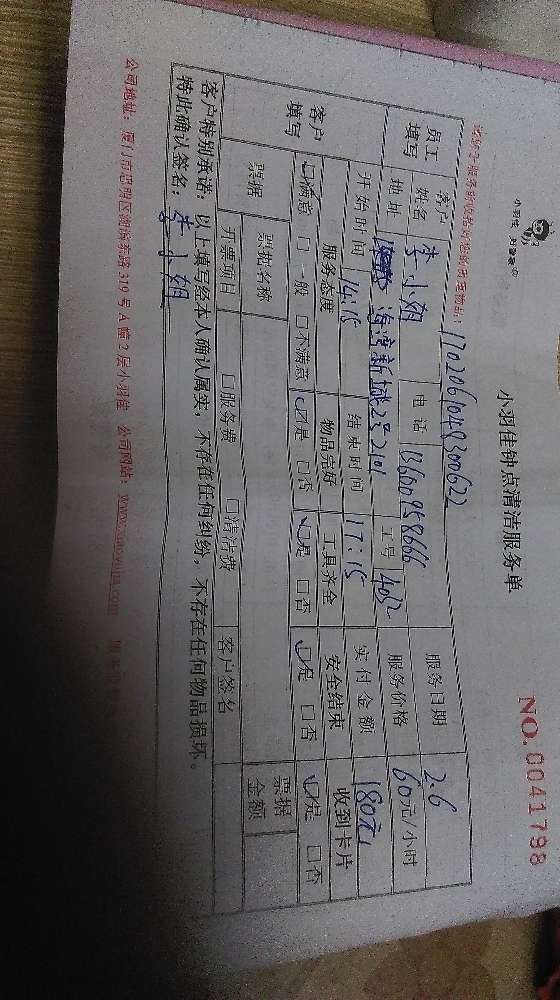 小羽佳 家庭服务
小羽佳钟点清洁服务单
NO. 0041798
1702061048300622
员工填写 客户姓名 李小姐 电话 13600958666 服务日期 2.6
地址 海湾新城2号2101 工号 402 服务价格 60元/小时
开始时间 14:15 结束时间 17:15 实付金额 180元
客户填写 服务态度 物品完好 工具齐全 安全结束 收到卡片
☑满意 □一般 □不满意 ☑是 □否 ☑是 □否 ☑是 □否 ☑是 □否
票据 票据名称 客户签名 票据金额
开票项目 □服务费 □清洁费
客户特别承诺：以上填写经本人确认属实，不存在任何纠纷，不存在任何物品损坏。
特此确认签名：李小姐
公司地址：厦门市思明区湖滨东路319号A幢2层小羽佳 公司网站：www.xiaoyujia.com